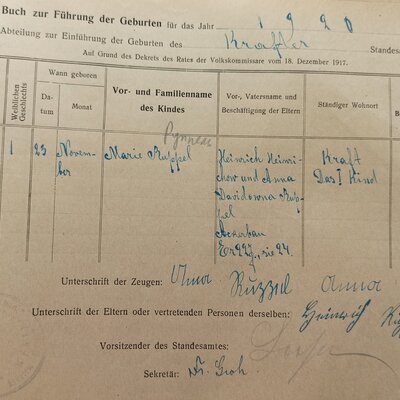 Buch zur Führung der Geburten für das Jahr 1920
Abteilung zur Einführung der Geburten des Kraftler Standesa
Auf Grund des Dekrets des Rates der Volkskommissare vom 18. Dezember 1917.
Weiblichen Geschlechts
Wann geboren
Da-
tum
Monat
Vor- und Familienname
des Kindes
Vor-, Vatersname und
Beschäftigung der Eltern
Ständiger Wohnort
B
1
23
Novem-
ber
Marie Ruppel
Heinrich Heinri-
chow und Anna
Davidowna Rup-
pel
Ackerbau
Er 27 J., sie 24.
Kraft
Das I Kind
Unterschrift der Zeugen: Anna
Unterschrift der Eltern oder vertretenden Personen derselben: Heinrich
Vorsitzender des Standesamtes:
Sekretär: Groh